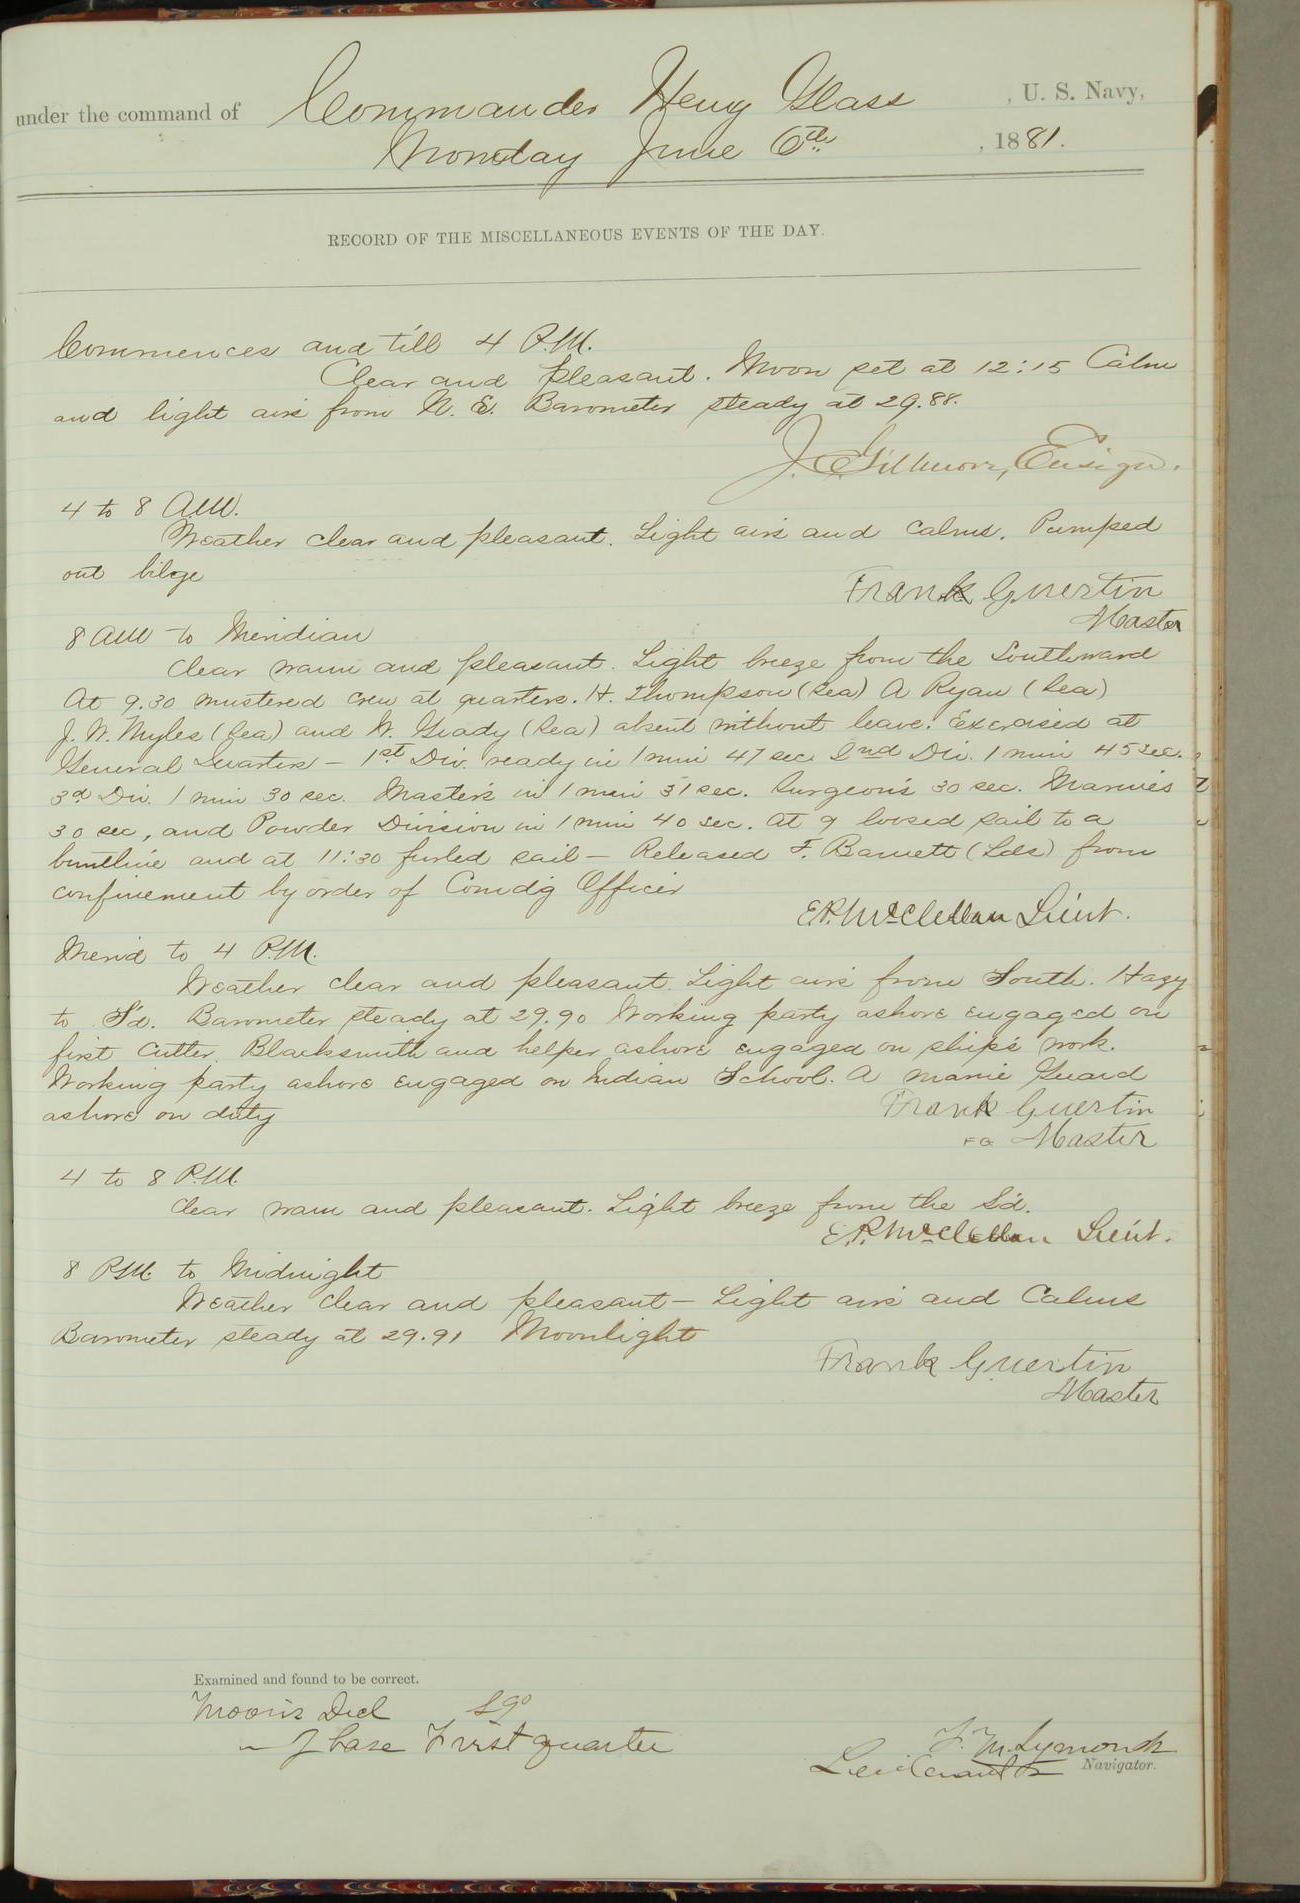 under the command of Commander Henry Glass , U. S. Navy,
Monday June 6th , 1881.
RECORD OF THE MISCELLANEOUS EVENTS OF THE DAY.
Commences and till 4 P.M.
Clear and pleasant. Moon set at 12:15 Calm
and light airs from N. E. Barometer steady at 29.88.
J. C. Gillmore, Ensign.
4 to 8 A.M.
Weather clear and pleasant. Light airs and calms. Pumped
out bilge
Frank Guertin
Master
8 AM to Meridian
Clear warm and pleasant. Light breeze from the Southward
At 9.30 mustered crew at quarters. H. Thompson (Sea) A Ryan (Sea)
J. W. Myles (Sea) and W. Grady (Sea) absent without leave. Exercised at
General Quarters – 1st Div. ready in 1 min 47 sec 2nd Div. 1 min 45 sec.
3d Div. 1 min 30 sec. Master's in 1 min 31 sec. Surgeon's 30 sec. Marines
30 sec, and Powder Division in 1 min 40 sec. At 9 loosed sail to a
buntline and at 11:30 furled sail – Released F. Barnett (Lds) from
confinement by order of Comdg Officer
E.P. McClellan Lieut.
Merid to 4 P.M.
Weather clear and pleasant. Light airs from South. Hazy
to S'd. Barometer steady at 29.90 Working party ashore engaged on
first cutter. Blacksmith and helper ashore engaged on ship's work.
Working party ashore engaged on Indian School. A marine Guard
ashore on duty
Frank Guertin
FG Master
4 to 8 P.M.
Clear warm and pleasant. Light breeze from the S'd.
E.P. McClellan Lieut.
8 P.M. to Midnight
Weather clear and pleasant – Light airs and Calms
Barometer steady at 29.91 Moonlight
Frank Guertin
Master
Examined and found to be correct.
Moon's Decl
" Phase First quarter
F. M. Symonds
Lieutenant & Navigator.